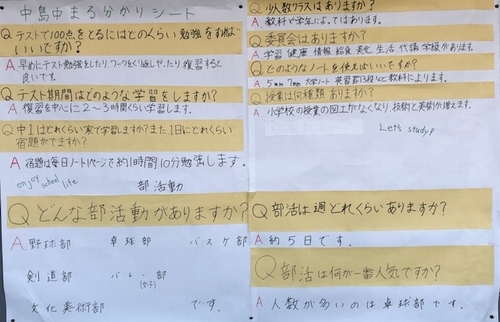 中島中まる分かりシート
Q テストで100点をとるにはどのくらい勉強をすれば
いいですか?
A 早めにテスト勉強をしたり、ワークをくり返しやったり復習すると
良いです。
Q テスト期間はどのような学習をしますか?
A 復習を中心に2~3時間くらい学習します。
Q 中1はどれくらい家で学習しますか?また1日にどれくらい
宿題がでますか?
A 宿題は毎日ノート1ページで約1時間10分勉強します。
enjoy school life
部活動
Q どんな部活動がありますか?
A 野球部 卓球部 バスケ部
剣道部 バレー部
(女子)
文化美術部 です。
Q 少人数クラスはありますか?
A 教科や学年によってはあります。
Q 委員会はありますか?
A 学習 健康 情報 給食 美化 生活 代議 学級があります。
Q どのようなノートを使えばいいですか?
A 5mm 7mm 大学ノート 英習罫13段など教科によります。
Q 授業は何種類ありますか?
A 小学校の授業の図工がなくなり、技術と美術が増えます。
Let's study♪
Q 部活は週どれくらいありますか?
A 約5日です。
Q 部活は何が一番人気ですか?
A 人数が多いのは卓球部です。